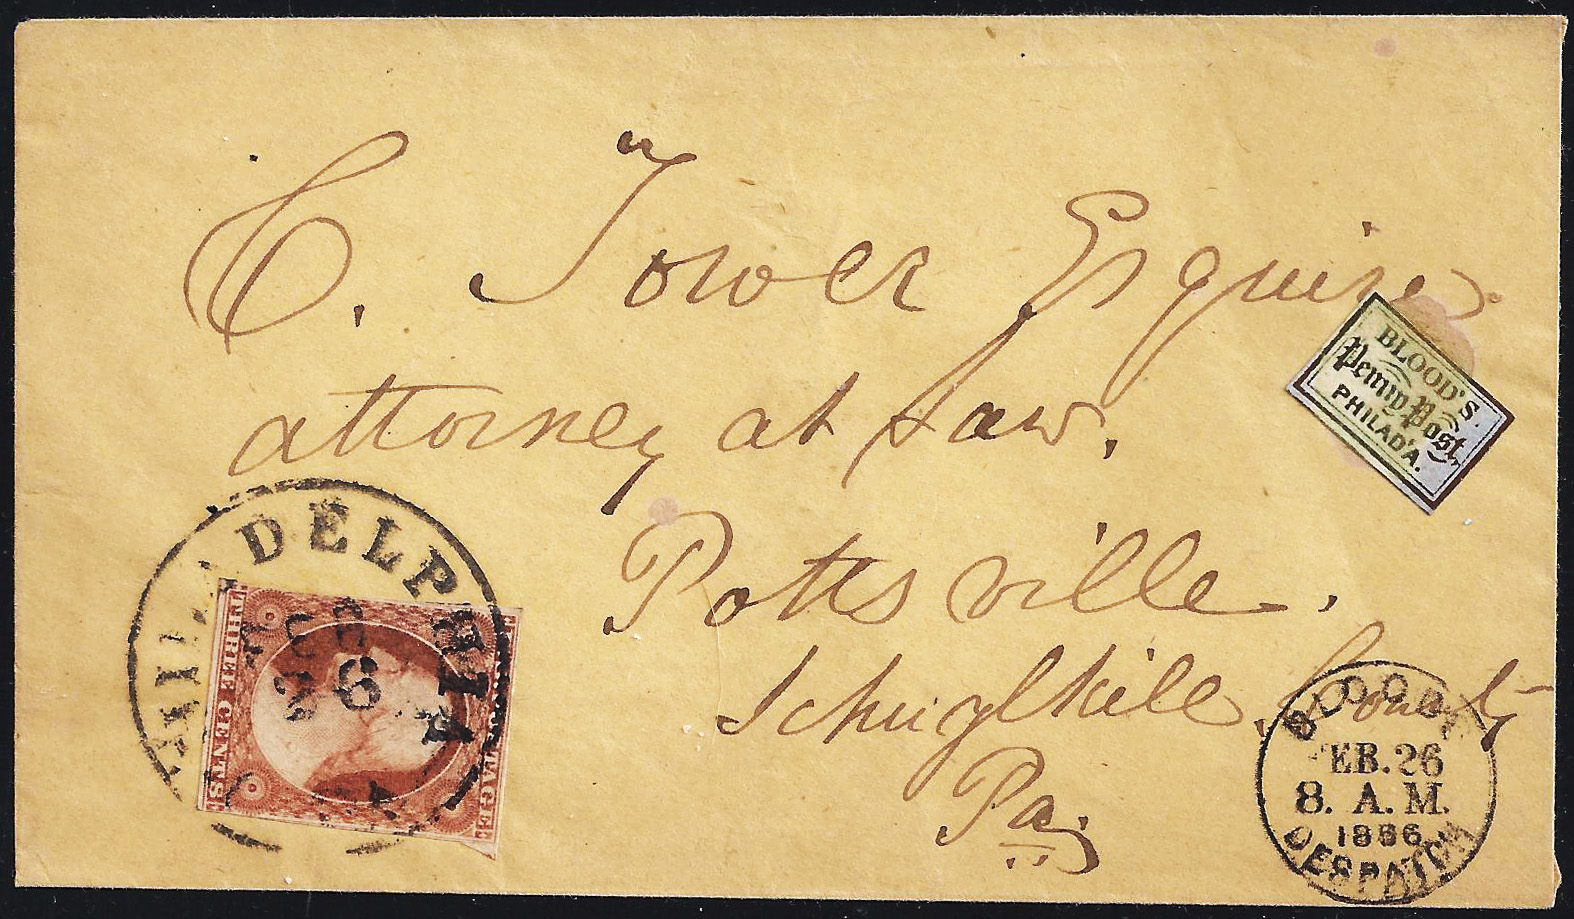 C. Tower Esquire
attorney at Law.
Pottsville.
Schuylkill County
Pa.
BLOOD'S.
Penny Post,
PHILAD'A.
PHILADELPHIA
THREE CENTS
BLOODS
FEB. 26
8. A. M.
1856
DESPATCH